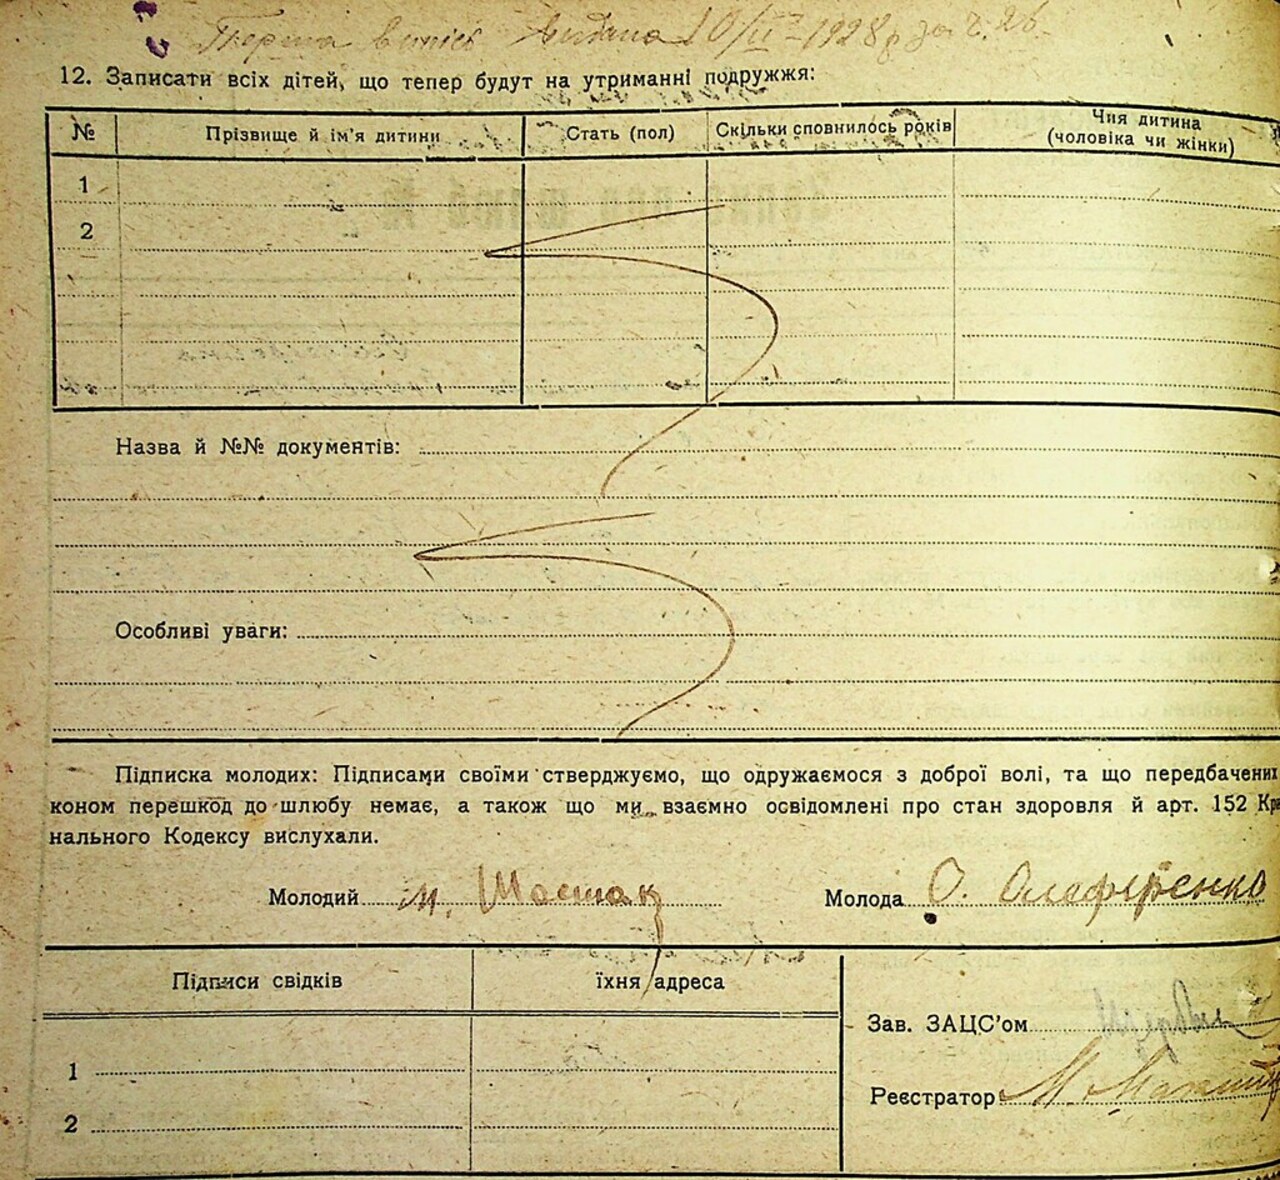 Перша випись видана 10/II 1928 р за ч. 26
12. Записати всіх дітей, що тепер будут на утриманні подружжя:
№ Прізвище й ім'я дитини Стать (пол) Скільки сповнилось років Чия дитина
(чоловіка чи жінки)
1
2
Назва й №№ документів:
Особливі уваги:
Підписка молодих: Підписами своїми стверджуємо, що одружаємося з доброї волі, та що передбачених
коном перешкод до шлюбу немає, а також що ми взаємно освідомлені про стан здоровля й арт. 152 Кри
нального Кодексу вислухали.
Молодий М. Шостак Молода О. Олеференко
Підписи свідків їхня адреса
Зав. ЗАЦС'ом
1
Реєстратор М.
2